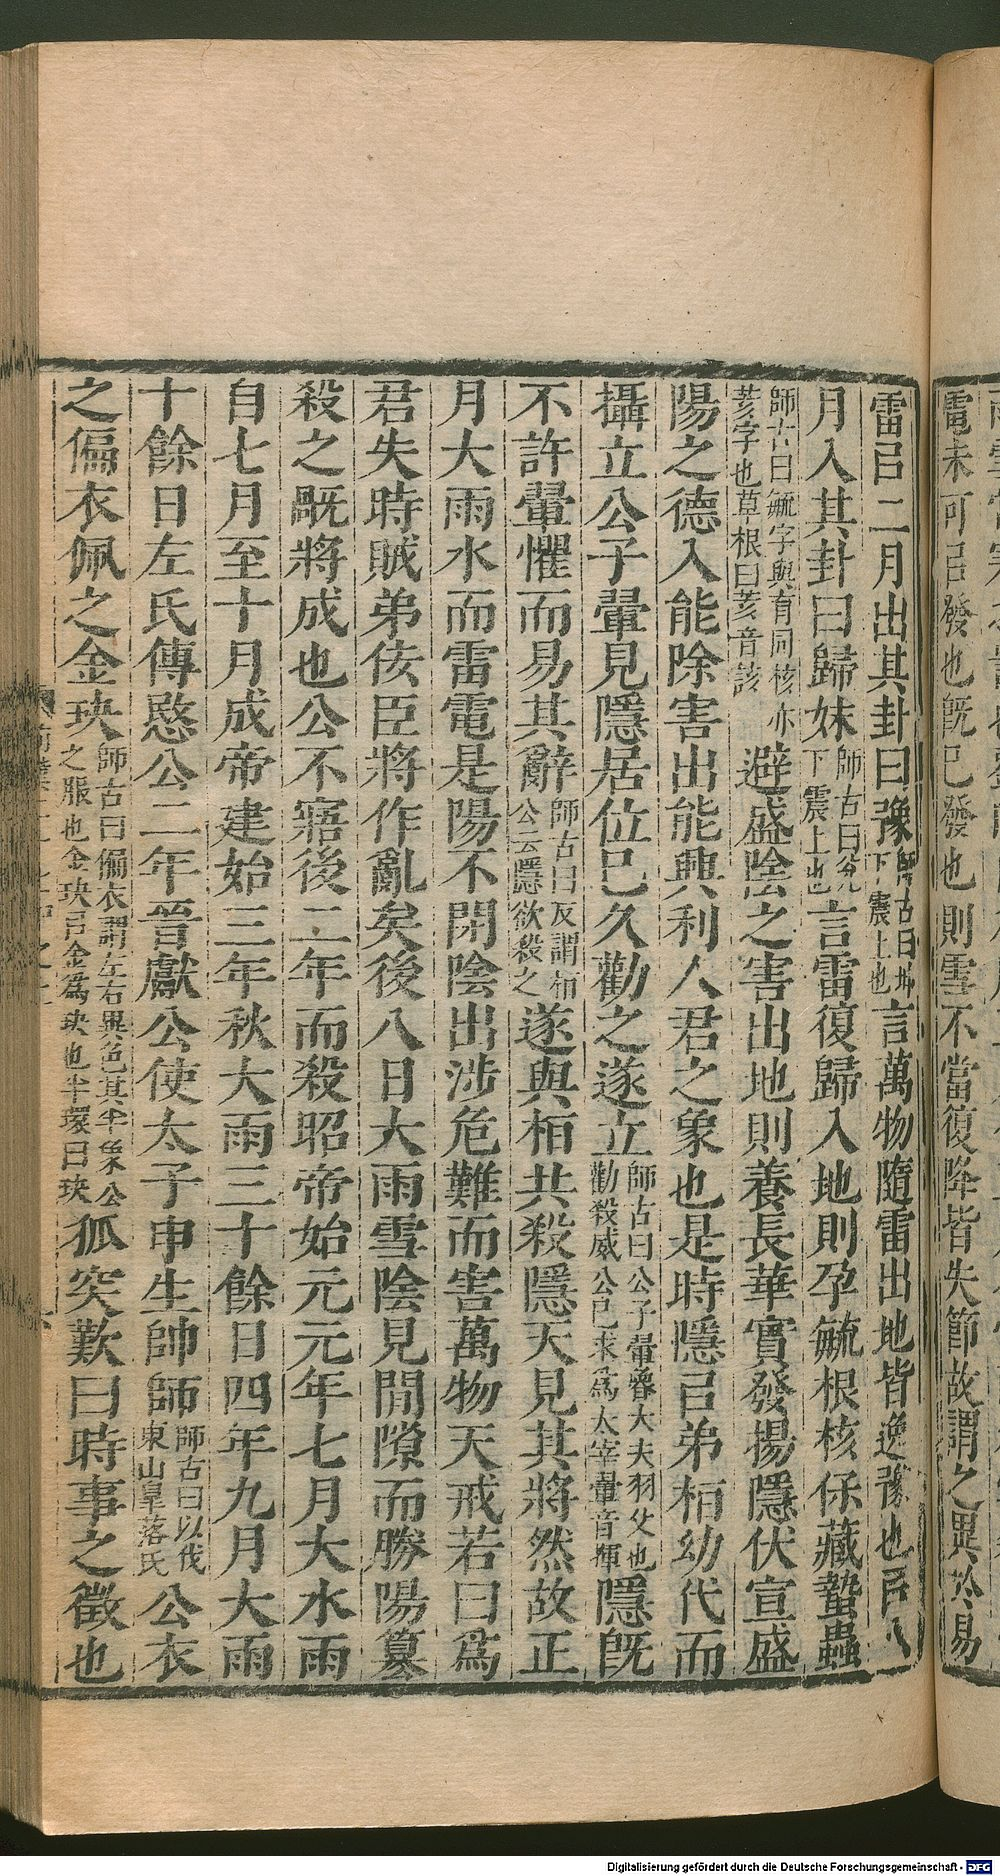 電未可㠯發也既已發也則雪不當復降皆失節故謂之異於易
雷㠯二月出其卦曰豫師古曰坤下震上也言萬物隨雷出地皆逸豫也㠯八
月入其卦曰歸妹師古曰兌下震上也言雷復歸入地則孕毓根核保藏蟄蟲
師古曰毓字與育同核亦荄字也草根曰荄音該避盛陰之害出地則養長華實發揚隱伏宣盛
陽之德入能除害出能興利人君之象也是時隱㠯弟桓幼代而
攝立公子翬見隱居位已久勸之遂立師古曰公子翬魯大夫羽父也勸殺威公已求為太宰翬音揮隱既
不許翬懼而易其辭師古曰反謂桓公云隱欲殺之遂與桓共殺隱天見其將然故正
月大雨水而雷電是陽不閉陰出涉危難而害萬物天戒若曰爲
君失時賊弟佞臣將作亂矣後八日大雨雪陰見閒隙而勝陽篡
殺之旤將成也公不寤後二年而殺昭帝始元元年七月大水雨
自七月至十月成帝建始三年秋大雨三十餘日四年九月大雨
十餘日左氏傳愍公二年晉獻公使太子申生帥師師古曰以伐東山皐落氏公衣
之偏衣佩之金玦師古曰偏衣謂左右異色其半象公之服也金玦㠯金爲玦也半環曰玦狐突歎曰時事之徵也
Digitalisierung gefördert durch die Deutsche Forschungsgemeinschaft - DFG